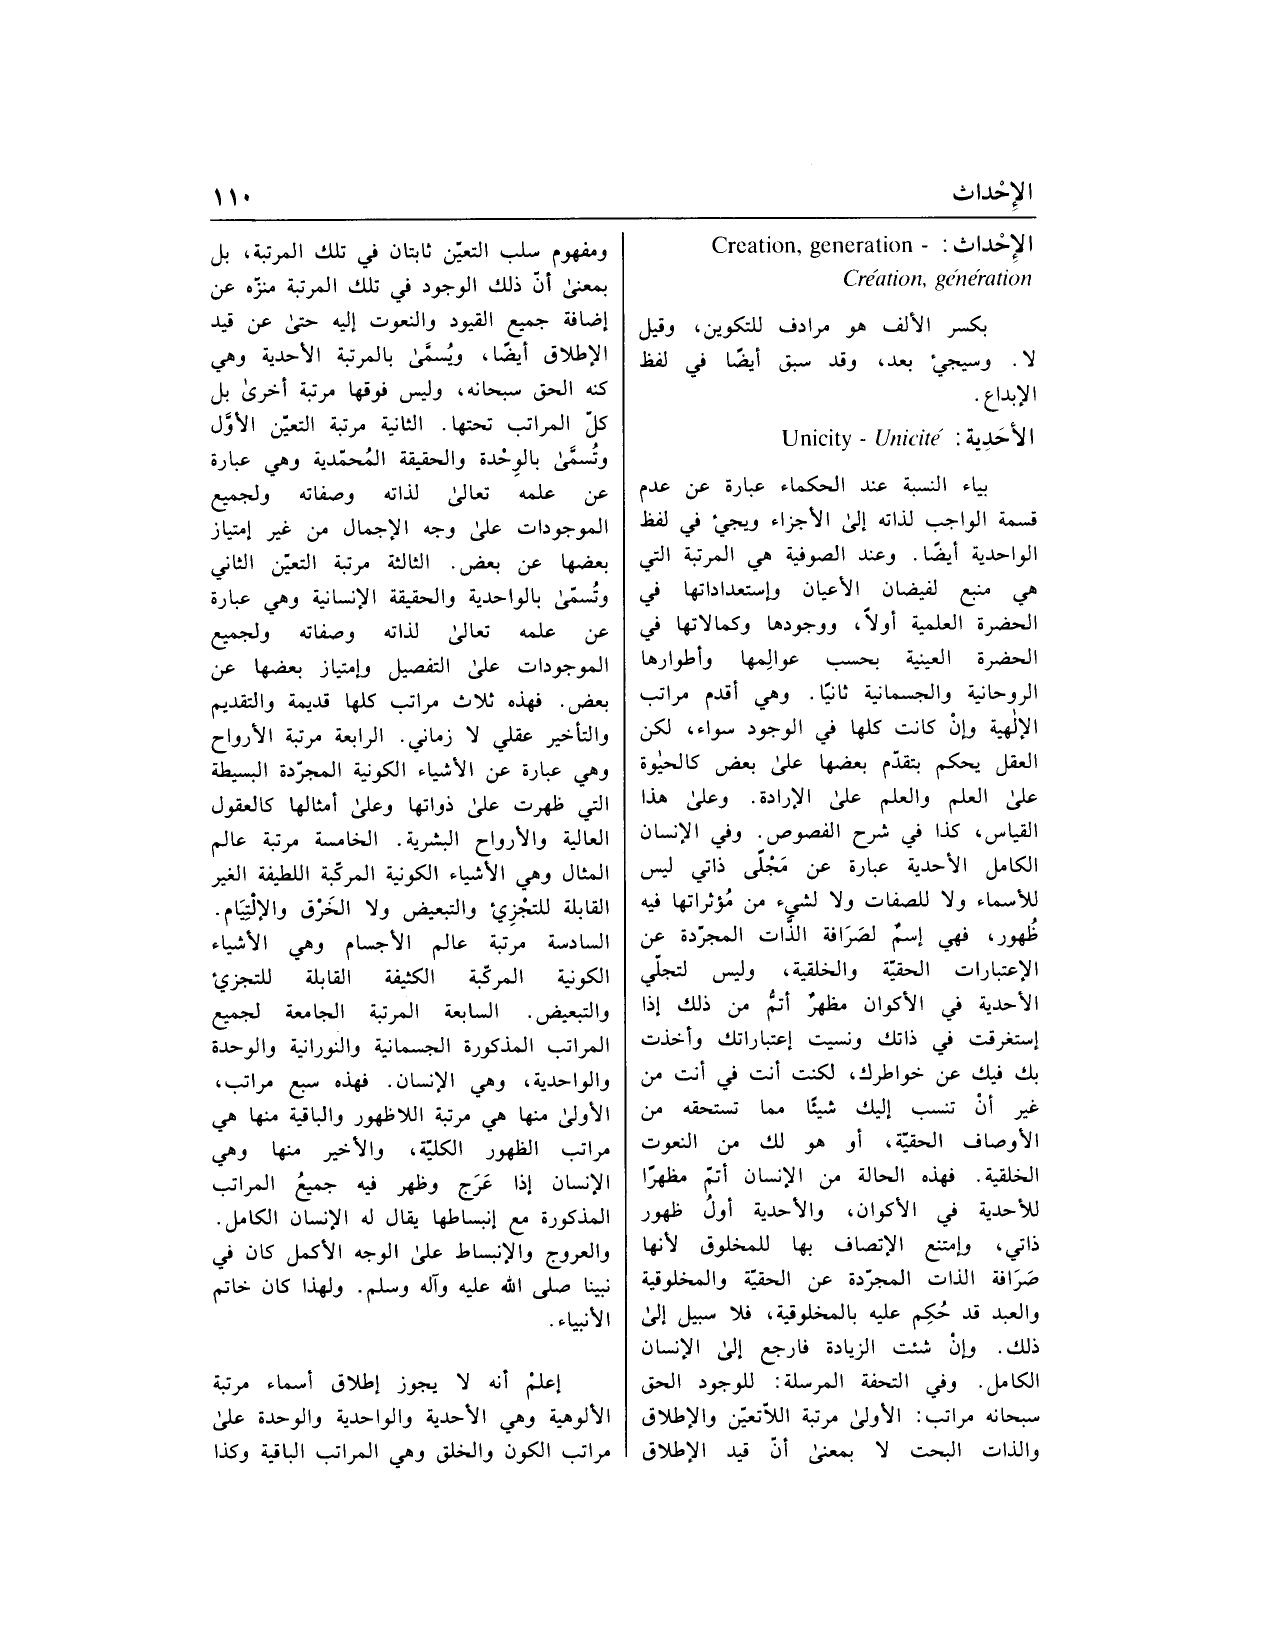 الإِحْداث
١١٠
الإِحْداث: - Creation, generation
Création, génération
بكسر الألف هو مرادف للتكوين، وقيل
لا. وسيجيئ بعد، وقد سبق أيضًا في لفظ
الإبداع.
الأَحَدِية: Unicity - Unicité
بياء النسبة عند الحكماء عبارة عن عدم
قسمة الواجب لذاته إلىٰ الأجزاء ويجيئ في لفظ
الواحدية أيضًا. وعند الصوفية هي المرتبة التي
هي منبع لفيضان الأعيان وإستعداداتها في
الحضرة العلمية أولاً، ووجودها وكمالاتها في
الحضرة العينية بحسب عوالِمها وأطوارها
الروحانية والجسمانية ثانيًا. وهي أقدم مراتب
الإلٰهية وإنْ كانت كلها في الوجود سواء، لكن
العقل يحكم بتقدّم بعضها علىٰ بعض كالحيٰوة
علىٰ العلم والعلم علىٰ الإرادة. وعلىٰ هذا
القياس، كذا في شرح الفصوص. وفي الإنسان
الكامل الأحدية عبارة عن مَجْلًى ذاتي ليس
للأسماء ولا للصفات ولا لشيء من مُؤثراتها فيه
ظُهور، فهي إسمٌ لصَرَافة الذَّات المجرّدة عن
الإعتبارات الحقيّة والخلقية، وليس لتجلّي
الأحدية في الأكوان مظهرٌ أتمُّ من ذلك إذا
إستغرقت في ذاتك ونسيت إعتباراتك وأخذت
بك فيك عن خواطرك، لكنت أنت في أنت من
غير أنْ تنسب إليك شيئًا مما تستحقه من
الأوصاف الحقيّة، أو هو لك من النعوت
الخلقية. فهذه الحالة من الإنسان أتمّ مظهرًا
للأحدية في الأكوان، والأحدية أولُ ظهور
ذاتي، وإمتنع الإتصاف بها للمخلوق لأنها
صَرَافة الذات المجرّدة عن الحقيّة والمخلوقية
والعبد قد حُكِم عليه بالمخلوقية، فلا سبيل إلىٰ
ذلك. وإنْ شئت الزيادة فارجع إلىٰ الإنسان
الكامل. وفي التحفة المرسلة: للوجود الحق
سبحانه مراتب: الأولىٰ مرتبة اللاّتعيّن والإطلاق
والذات البحت لا بمعنىٰ أنّ قيد الإطلاق
ومفهوم سلب التعيّن ثابتان في تلك المرتبة، بل
بمعنىٰ أنّ ذلك الوجود في تلك المرتبة منزّه عن
إضافة جميع القيود والنعوت إليه حتىٰ عن قيد
الإطلاق أيضًا، ويُسمَّىٰ بالمرتبة الأحدية وهي
كنه الحق سبحانه، وليس فوقها مرتبة أخرىٰ بل
كلّ المراتب تحتها. الثانية مرتبة التعيّن الأوَّل
وتُسمَّىٰ بالوِحْدة والحقيقة المُحمّدية وهي عبارة
عن علمه تعالىٰ لذاته وصفاته ولجميع
الموجودات علىٰ وجه الإجمال من غير إمتياز
بعضها عن بعض. الثالثة مرتبة التعيّن الثاني
وتُسمّىٰ بالواحدية والحقيقة الإنسانية وهي عبارة
عن علمه تعالىٰ لذاته وصفاته ولجميع
الموجودات علىٰ التفصيل وإمتياز بعضها عن
بعض. فهذه ثلاث مراتب كلها قديمة والتقديم
والتأخير عقلي لا زماني. الرابعة مرتبة الأرواح
وهي عبارة عن الأشياء الكونية المجرّدة البسيطة
التي ظهرت علىٰ ذواتها وعلىٰ أمثالها كالعقول
العالية والأرواح البشرية. الخامسة مرتبة عالم
المثال وهي الأشياء الكونية المركّبة اللطيفة الغير
القابلة للتجْزِيْ والتبعيض ولا الخَرْق والإلْتِيَام.
السادسة مرتبة عالم الأجسام وهي الأشياء
الكونية المركّبة الكثيفة القابلة للتجزيْ
والتبعيض. السابعة المرتبة الجامعة لجميع
المراتب المذكورة الجسمانية والنورانية والوحدة
والواحدية، وهي الإنسان. فهذه سبع مراتب،
الأولىٰ منها هي مرتبة اللاظهور والباقية منها هي
مراتب الظهور الكليّة، والأخير منها وهي
الإنسان إذا عَرَج وظهر فيه جميعُ المراتب
المذكورة مع إنبساطها يقال له الإنسان الكامل.
والعروج والإنبساط علىٰ الوجه الأكمل كان في
نبينا صلى الله عليه وآله وسلم. ولهذا كان خاتم
الأنبياء.
إعلمْ أنه لا يجوز إطلاق أسماء مرتبة
الألوهية وهي الأحدية والواحدية والوحدة علىٰ
مراتب الكون والخلق وهي المراتب الباقية وكذا